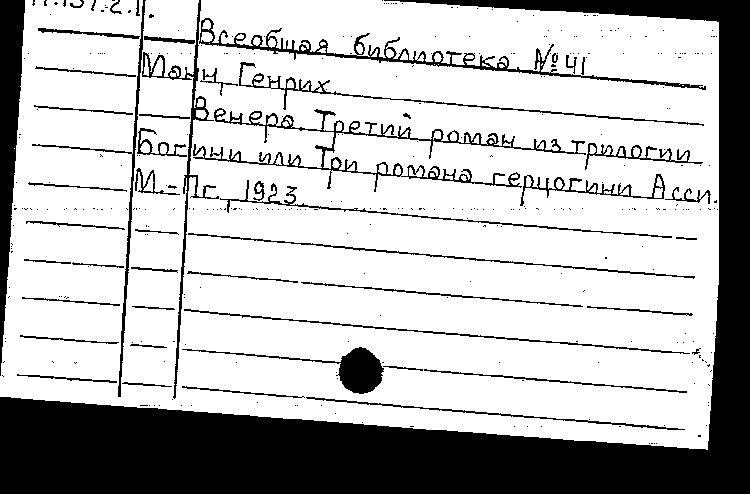 Всеобщая библиотека №41
Манн, Генрих.
Венера. Третий роман из трилогии
Богини или Три романа герцогини Асси.
М.-Пг., 1923.